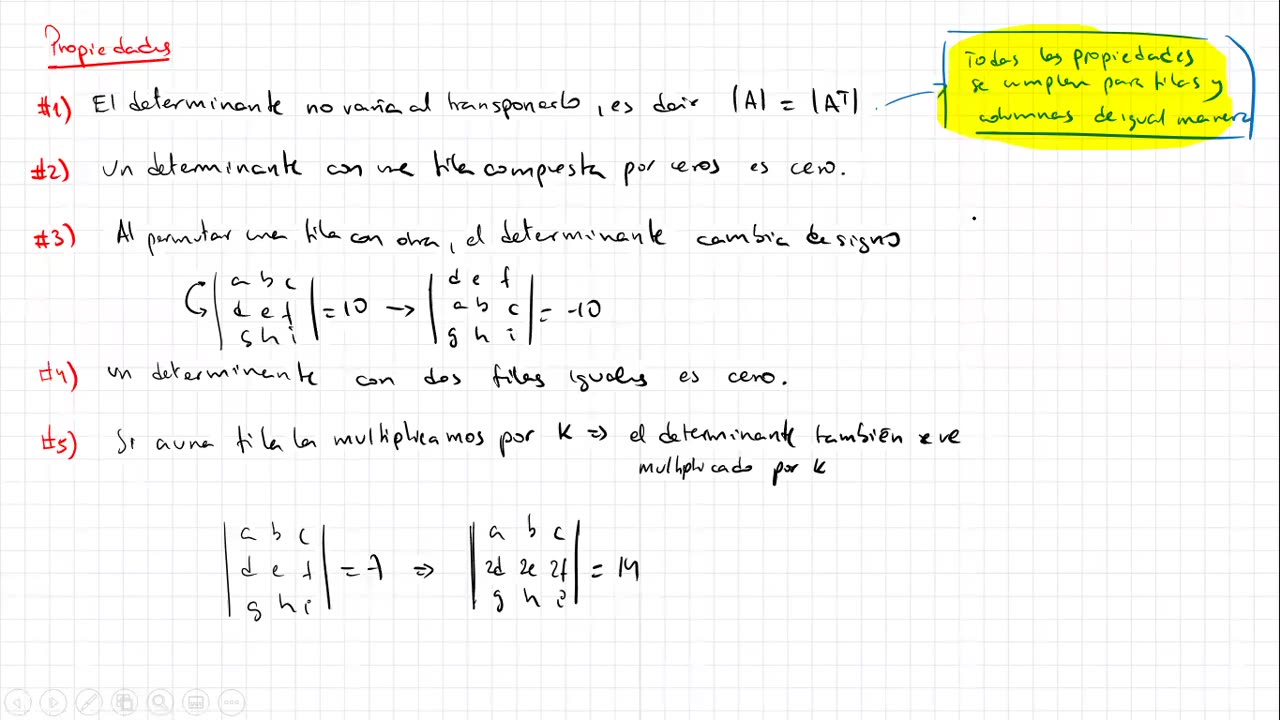 Propiedades
Todas las propiedades
se cumplen para filas y
columnas de igual manera
#1) El determinante no varía al transponerlo, es decir |A| = |Aᵀ|
#2) Un determinante con una fila compuesta por ceros es cero.
#3) Al permutar una fila con otra, el determinante cambia de signo
|a b c| |d e f|
|d e f| = 10 → |a b c| = -10
|g h i| |g h i|
#4) Un determinante con dos filas iguales es cero.
#5) Si a una fila la multiplicamos por K ⇒ el determinante también se ve
multiplicado por K
|a b c| |a b c|
|d e f| = 7 ⇒ |2d 2e 2f| = 14
|g h i| |g h i|